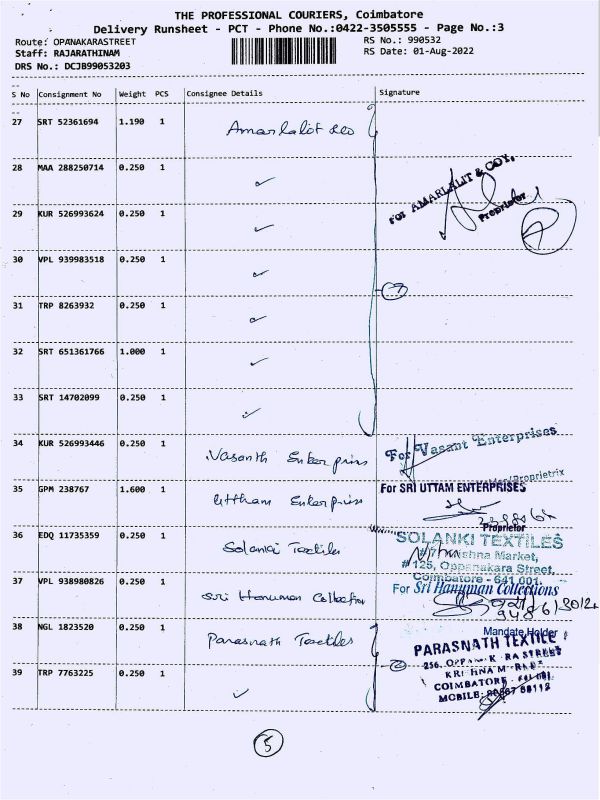 THE PROFESSIONAL COURIERS, Coimbatore
Delivery Runsheet - PCT - Phone No.:0422-3505555 - Page No.:3
Route: OPANAKARASTREET RS No.: 990532
Staff: RAJARATHINAM RS Date: 01-Aug-2022
DRS No.: DCJB99053203
S No Consignment No Weight PCS Consignee Details Signature
27 SRT 52361694 1.190 1
28 MAA 288250714 0.250 1 ✓
For AMARLALIT & COY,
Proprietor
29 KUR 526993624 0.250 1 ✓
30 VPL 939983518 0.250 1 ✓
7
31 TRP 8263932 0.250 1 ✓
32 SRT 651361766 1.000 1 ✓
33 SRT 14702099 0.250 1 ✓
34 KUR 526993446 0.250 1 Vasanth Enterprins For Vasant Enterprises
Proprietrix
35 GPM 238767 1.600 1 Uttham Enterprise For SRI UTTAM ENTERPRISES
Proprietor
36 EDQ 11735359 0.250 1 Solanki Textiles SOLANKI TEXTILES
Market,
# 125, Oppanakara Street,
Coimbatore - 641 001.
37 VPL 938980826 0.250 1 Sri Hanuman Collection For Sri Hanuman Collections
38 NGL 1823520 0.250 1 Parasnath Textiles Mandate Holder
PARASNATH TEXTILE
256,
39 TRP 7763225 0.250 1 ✓ 2
COIMBATORE
MOBILE:
5